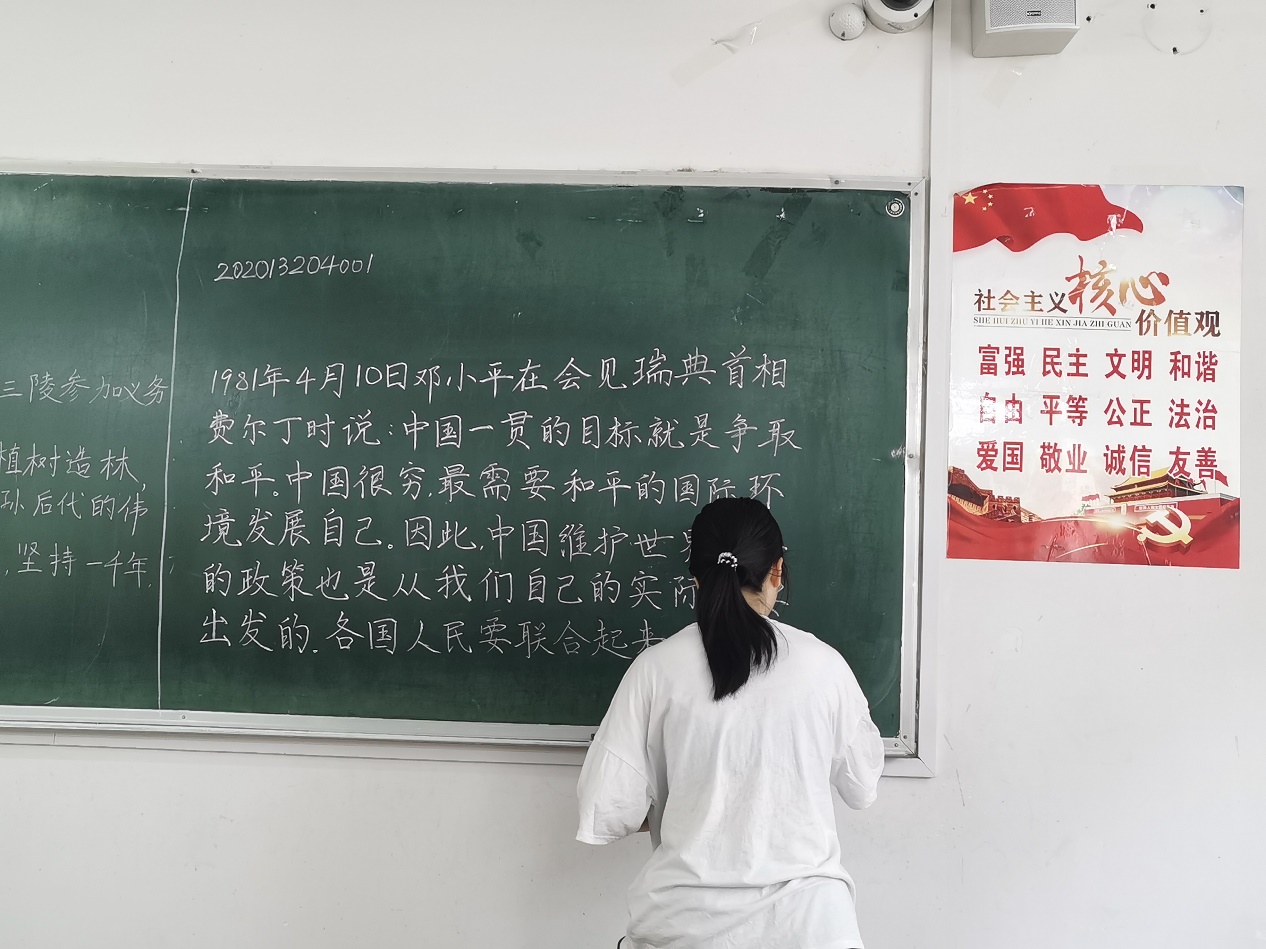 三陵参加义务
植树造林,
孙后代的伟
,坚持一千年,
202013204001
1981年4月10日邓小平在会见瑞典首相
费尔丁时说:中国一贯的目标就是争取
和平。中国很穷,最需要和平的国际环
境发展自己。因此,中国维护世
的政策也是从我们自己的实际
出发的.各国人民要联合起来
社会主义核心
SHE HUI ZHU YI HE XIN JIA ZHI GUAN
价值观
富强 民主 文明 和谐
自由 平等 公正 法治
爱国 敬业 诚信 友善